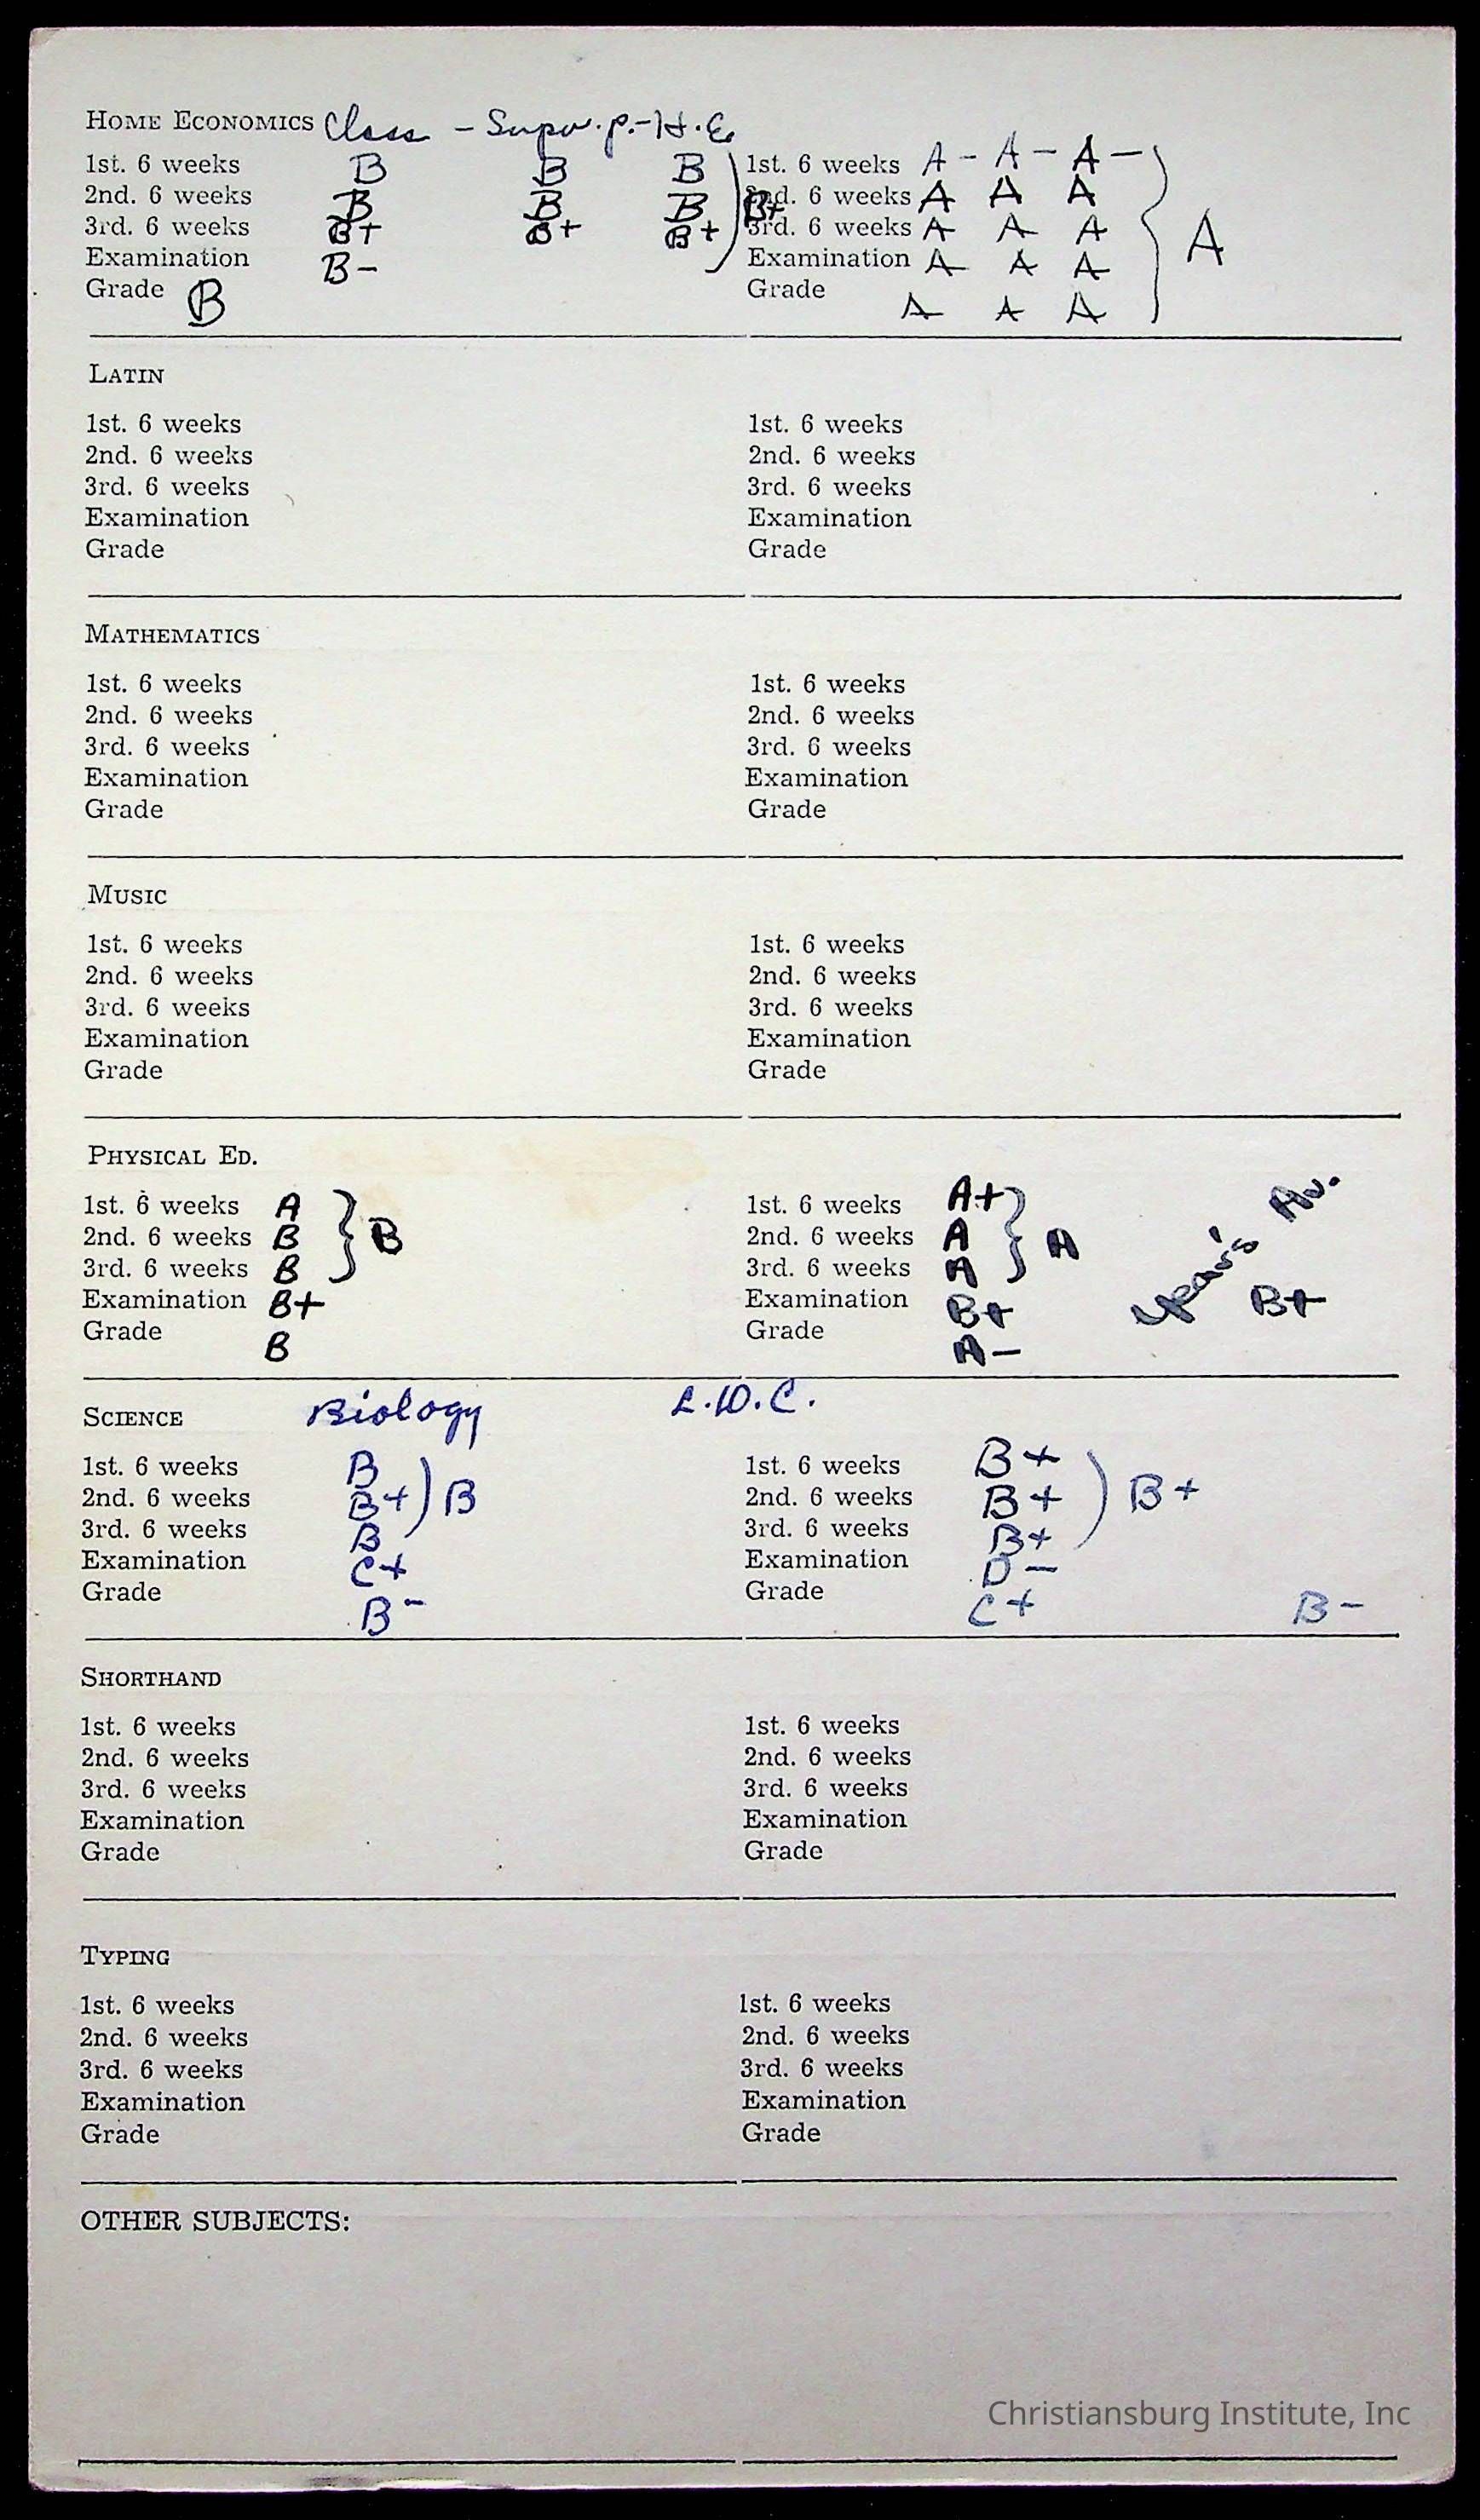 HOME ECONOMICS Class - Superv. p. - H. E.
1st. 6 weeks B B B 1st. 6 weeks A- A- A-
2nd. 6 weeks B B B B+ 2nd. 6 weeks A A A
3rd. 6 weeks B+ B+ B+ 3rd. 6 weeks A A A A
Examination B- Examination A A A
Grade B Grade A A A
LATIN
1st. 6 weeks 1st. 6 weeks
2nd. 6 weeks 2nd. 6 weeks
3rd. 6 weeks 3rd. 6 weeks
Examination Examination
Grade Grade
MATHEMATICS
1st. 6 weeks 1st. 6 weeks
2nd. 6 weeks 2nd. 6 weeks
3rd. 6 weeks 3rd. 6 weeks
Examination Examination
Grade Grade
MUSIC
1st. 6 weeks 1st. 6 weeks
2nd. 6 weeks 2nd. 6 weeks
3rd. 6 weeks 3rd. 6 weeks
Examination Examination
Grade Grade
PHYSICAL ED.
1st. 6 weeks A 1st. 6 weeks A+ Year's Av.
2nd. 6 weeks B B 2nd. 6 weeks A A
3rd. 6 weeks B 3rd. 6 weeks A
Examination B+ Examination B+ B+
Grade B Grade A-
SCIENCE Biology L.W.C.
1st. 6 weeks B 1st. 6 weeks B+
2nd. 6 weeks B+ B 2nd. 6 weeks B+ B+
3rd. 6 weeks B 3rd. 6 weeks B+
Examination C+ Examination D-
Grade B- Grade C+ B-
SHORTHAND
1st. 6 weeks 1st. 6 weeks
2nd. 6 weeks 2nd. 6 weeks
3rd. 6 weeks 3rd. 6 weeks
Examination Examination
Grade Grade
TYPING
1st. 6 weeks 1st. 6 weeks
2nd. 6 weeks 2nd. 6 weeks
3rd. 6 weeks 3rd. 6 weeks
Examination Examination
Grade Grade
OTHER SUBJECTS:
Christiansburg Institute, Inc